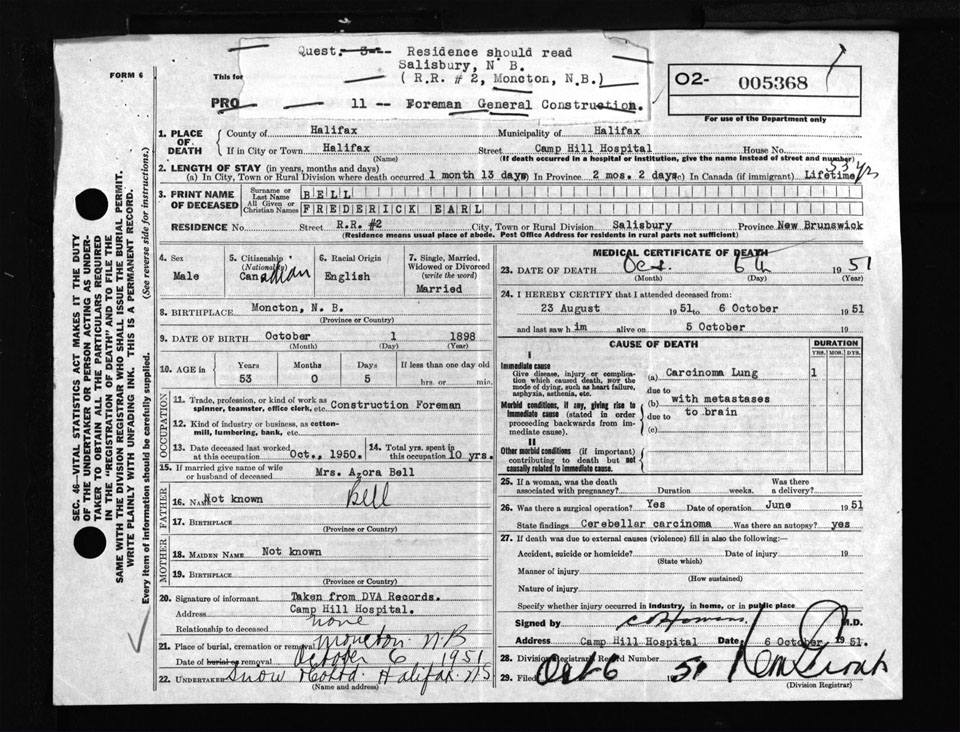 Quest. 3-- -- Residence should read
Salisbury, N B.
( R.R. # 2, Moncton, N.B.)
11 -- Foreman General Construction.
FORM 6
This for
PRO
O2- 005368
For use of the Department only
1. PLACE OF DEATH
County of Halifax Municipality of Halifax
If in City or Town Halifax Street Camp Hill Hospital House No.
(Name) (If death occurred in a hospital or institution, give the name instead of street and number)
2. LENGTH OF STAY (in years, months and days)
(a) In City, Town or Rural Division where death occurred 1 month 13 days In Province 2 mos. 2 days c) In Canada (if immigrant) Lifetime 53 yrs
3. PRINT NAME OF DECEASED
Surname or Last Name BELL
All Given or Christian Names FREDERICK EARL
RESIDENCE No. Street R.R. #2 City, Town or Rural Division Salisbury Province New Brunswick
(Residence means usual place of abode. Post Office Address for residents in rural parts not sufficient)
4. Sex Male
5. Citizenship (Nationality) Canadian
6. Racial Origin English
7. Single, Married, Widowed or Divorced (write the word) Married
8. BIRTHPLACE Moncton, N. B.
(Province or Country)
9. DATE OF BIRTH October 1 1898
(Month) (Day) (Year)
10. AGE in Years Months Days If less than one day old
53 0 5 hrs. or min.
OCCUPATION
11. Trade, profession, or kind of work as spinner, teamster, office clerk, etc. Construction Foreman
12. Kind of industry or business, as cotton-mill, lumbering, bank, etc.
13. Date deceased last worked at this occupation Oct., 1950.
14. Total yrs. spent in this occupation 10 yrs.
15. If married give name of wife or husband of deceased Mrs. Azora Bell
FATHER
16. NAME Not known Bell
17. BIRTHPLACE
(Province or Country)
MOTHER
18. MAIDEN NAME Not known
19. BIRTHPLACE
(Province or Country)
20. Signature of informant Taken from DVA Records.
Address Camp Hill Hospital.
Relationship to deceased none
21. Place of burial, cremation or removal Moncton N.B
Date of burial or removal October 6 1951
22. UNDERTAKER Snow Halifax. N S
(Name and address)
MEDICAL CERTIFICATE OF DEATH
23. DATE OF DEATH Oct. 6th 1951
(Month) (Day) (Year)
24. I HEREBY CERTIFY that I attended deceased from:
23 August 1951 to 6 October 1951
and last saw him alive on 5 October 19
CAUSE OF DEATH DURATION
YRS. MOS. DYS.
I
Immediate cause
Give disease, injury or complication which caused death, NOT the mode of dying, such as heart failure, asphyxia, asthenia, etc.
(a) Carcinoma Lung 1
due to
Morbid conditions, if any, giving rise to immediate cause (stated in order proceeding backwards from immediate cause).
(b) with metastases
due to to brain
(c)
II
Other morbid conditions (if important) contributing to death but not causally related to immediate cause.
25. If a woman, was the death associated with pregnancy? Duration weeks. Was there a delivery?
26. Was there a surgical operation? Yes Date of operation June 1951
State findings Cerebellar carcinoma Was there an autopsy? yes
27. If death was due to external causes (violence) fill in also the following:—
Accident, suicide or homicide? Date of injury 19
(State which)
Manner of injury
(How sustained)
Nature of injury
Specify whether injury occurred in industry, in home, or in public place
Signed by M.D.
Address Camp Hill Hospital Date 6 October 1951.
28. Division Registrar's Record Number
29. Filed Oct 6 1951
(Division Registrar)
SEC. 46—VITAL STATISTICS ACT MAKES IT THE DUTY
OF THE UNDERTAKER OR PERSON ACTING AS UNDER-
TAKER TO OBTAIN ALL THE PARTICULARS REQUIRED
IN THE "REGISTRATION OF DEATH" AND TO FILE THE
SAME WITH THE DIVISION REGISTRAR WHO SHALL ISSUE THE BURIAL PERMIT.
WRITE PLAINLY WITH UNFADING INK. THIS IS A PERMANENT RECORD.
Every item of information should be carefully supplied. (See reverse side for instructions.)